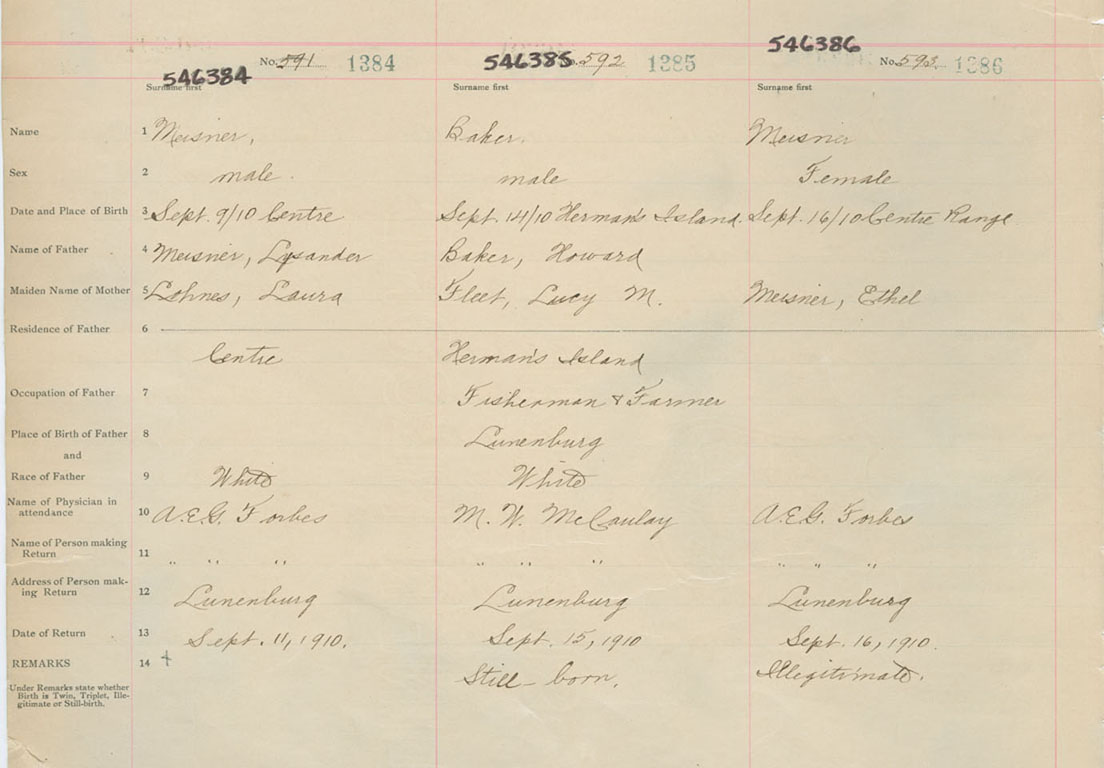 546386
546384 No. 591 1384 546385 No. 592 1385 No. 593 1386
Surname first Surname first Surname first
Name 1 Meisner, Baker. Meisner
Sex 2 male. male Female
Date and Place of Birth 3 Sept. 9/10 Centre Sept. 14/10 Herman's Island. Sept. 16/10 Centre Range
Name of Father 4 Meisner, Lysander Baker, Howard
Maiden Name of Mother 5 Lohnes, Laura Fleet, Lucy M. Meisner, Ethel
Residence of Father 6
Centre Herman's Island
Occupation of Father 7 Fisherman & Farmer
Place of Birth of Father 8 Lunenburg
and
Race of Father 9 White White
Name of Physician in
attendance 10 A.E.G. Forbes M. W. McCaulay A.E.G. Forbes
Name of Person making
Return 11 " " " " " " " " "
Address of Person mak-
ing Return 12 Lunenburg Lunenburg Lunenburg
Date of Return 13 Sept. 11, 1910. Sept. 15, 1910 Sept. 16, 1910.
REMARKS 14 + Still born. Illegitimate.
Under Remarks state whether
Birth is Twin, Triplet, Ille-
gitimate or Still-birth.